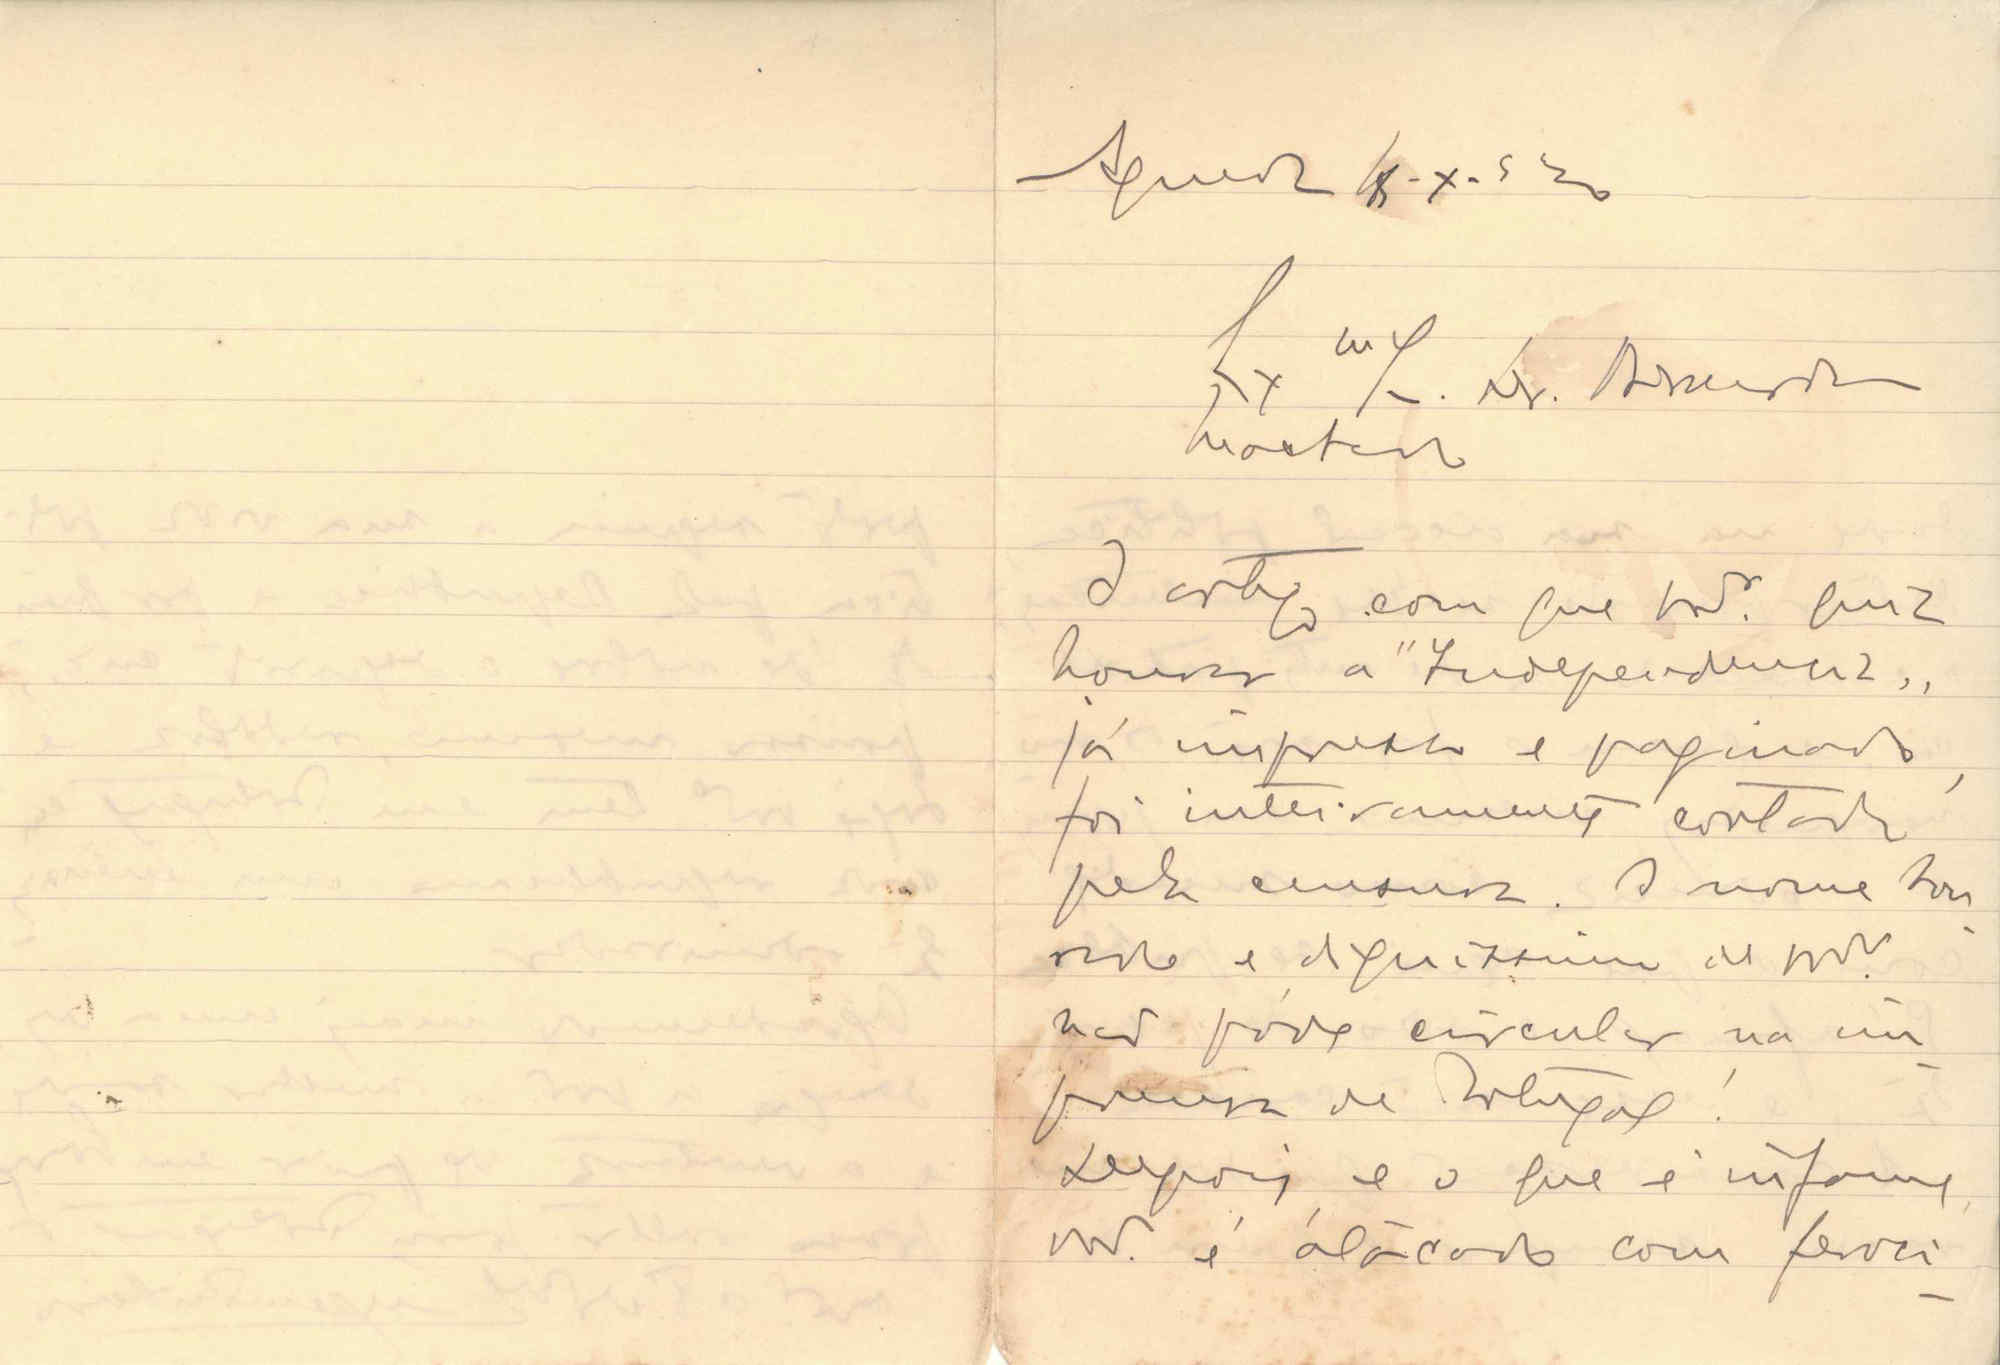 Agueda -X-
Exmo Sr. Dr. Bernardino
Machado
O artigo com que V. quiz
honrar a "Independencia",,
já impresso e paginado,
foi inteiramente cortado
pela censura. O nome hon-
rado e dignissimo de V.
não póde circular na im-
prensa de Portugal!
Depois, e o que é infame,
V. é átácado com feroci-